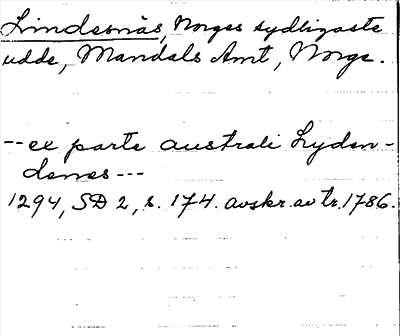 Lindesnäs, Norges sydligaste
udde, Mandals Amt, Norge.
-- ex parte australi Lyden-
denes ---
1294, SD 2, s. 174. avskr. av tr. 1786.